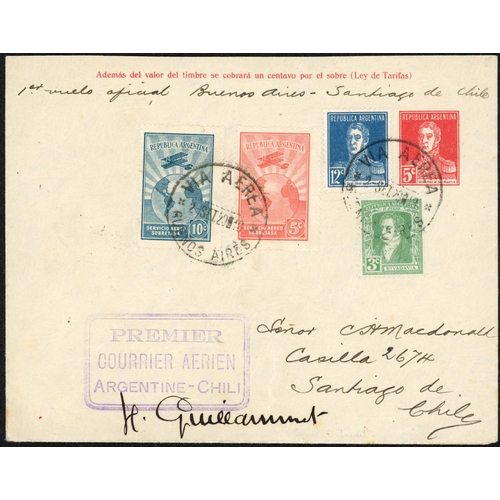 Además del valor del timbre se cobrará un centavo por el sobre (Ley de Tarifas)
1er vuelo oficial Buenos Aires - Santiago de Chile
REPUBLICA ARGENTINA
SERVICIO AEREO
SOBRETASA
10c
REPUBLICA ARGENTINA
SERVICIO AEREO
SOBRETASA
5c
REPUBLICA ARGENTINA
12c
REPUBLICA ARGENTINA
5c
3c
RIVADAVIA
VIA AEREA
BUENOS AIRES
VIA AEREA
PREMIER
COURRIER AERIEN
ARGENTINE-CHILI
H. Guillaumet
Señor CAMacdonald
Casilla 2674
Santiago de
Chile